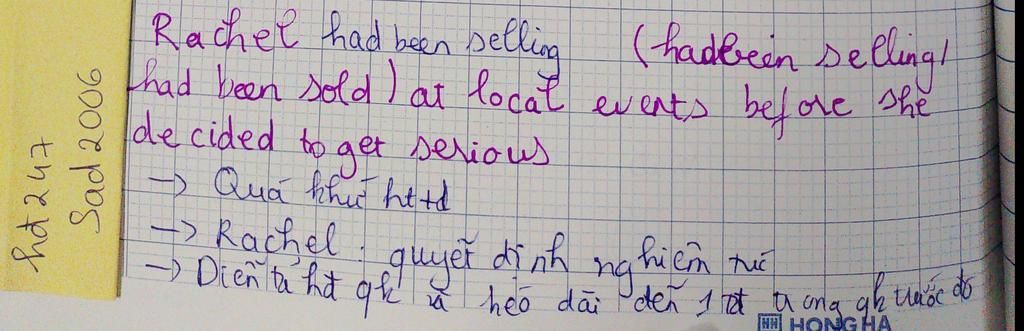 Rachel had been selling (had been selling/
had been sold) at local events before she
decided to get serious
→ Quá khứ httd
→ Rachel. quyết định nghiêm túc
→ Diễn tả hđ qk và kéo dài đến 1 tđ trong qk trước đó
hđt247
Sad2006
HH HONG HA